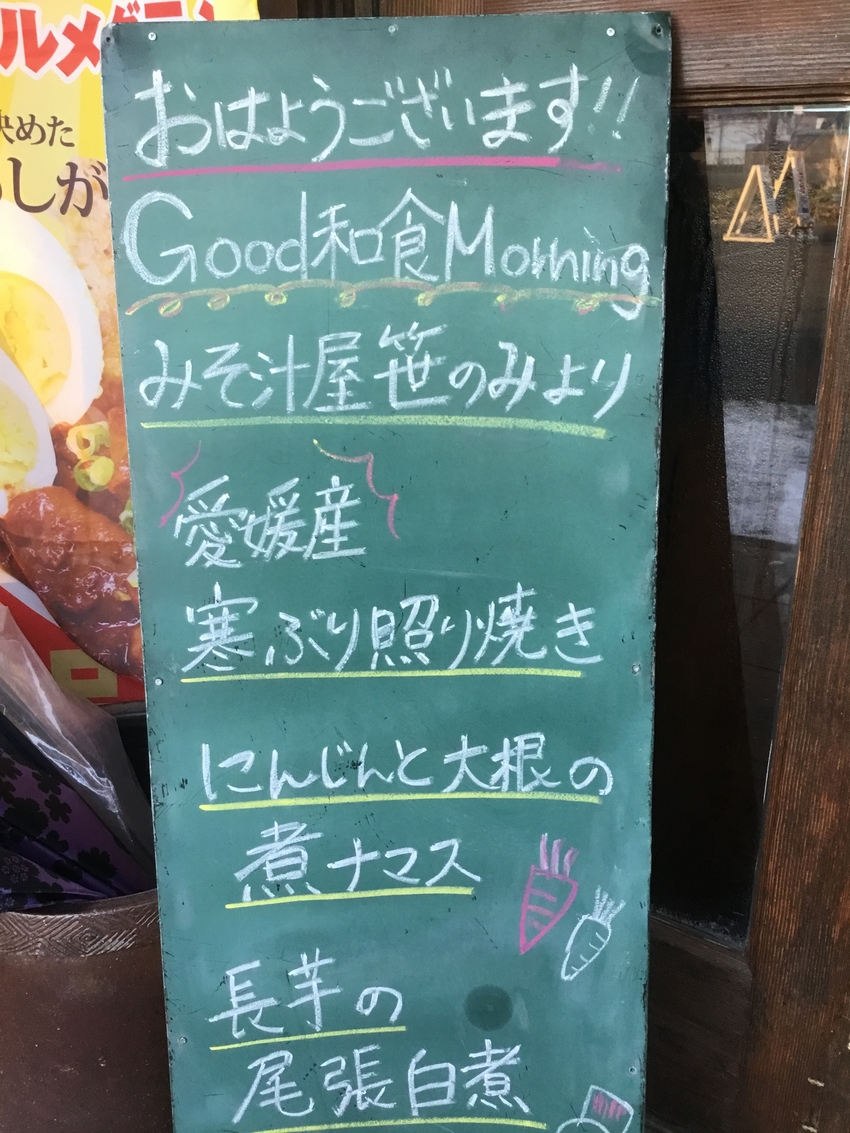 おはようございます!!
Good和食Morning
みそ汁屋 笹のみより
愛媛産
寒ぶり照り焼き
にんじんと大根の
煮ナマス
長芋の
尾張白煮
決めた
しが